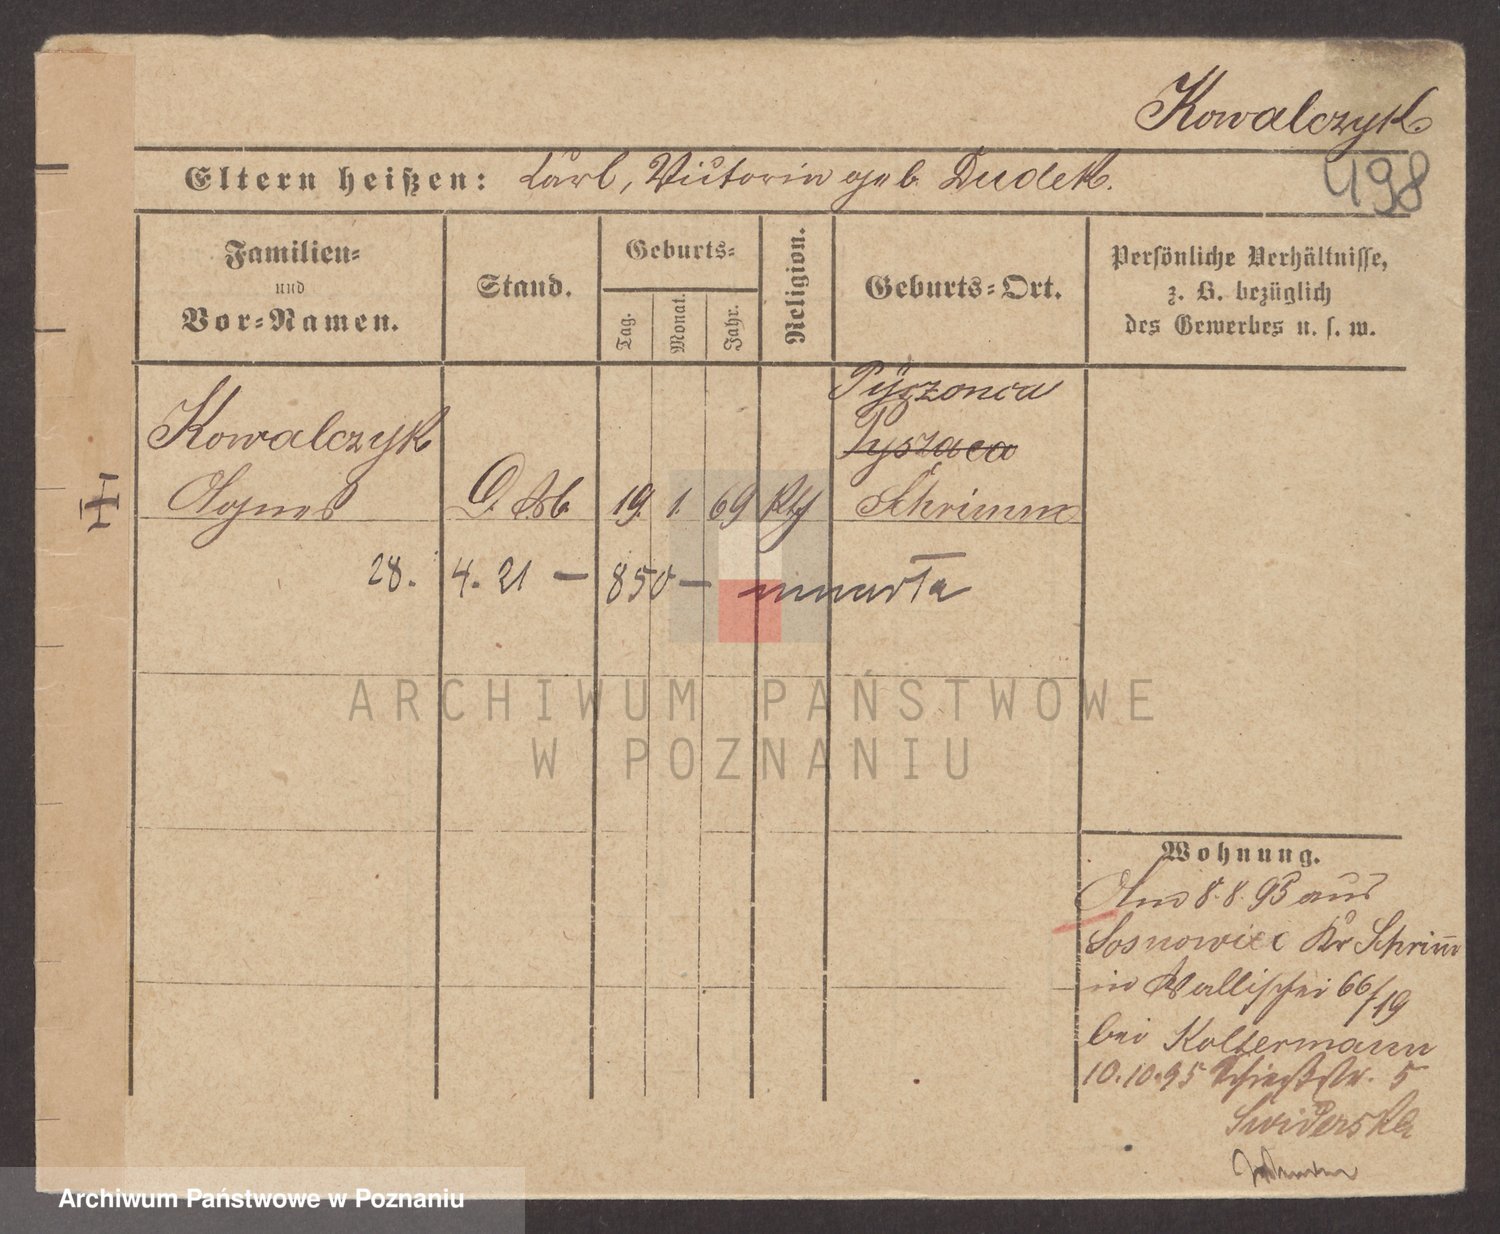 Kowalczyk
498
Eltern heißen: Karl, Victoria geb. Dudek.
Familien=
und
Vor=Namen.
Stand.
Geburts=
Tag.
Monat.
Jahr.
Religion.
Geburts=Ort.
Persönliche Verhältnisse,
z. B. bezüglich
des Gewerbes u. s. w.
Kowalczyk
Agnes
D. M.
19. 1. 69
Kth
Pyszaca
Schrimm
28. 4. 21 — 850 — umarła
Wohnung.
Am 8. 8. 93 aus
Sosnowiec Kr Schrimm
in Wallischei 66/19
bei Koltermann
10.10.95 Schießstr. 5
Swiderska
ARCHIWUM PAŃSTWOWE
W POZNANIU
Archiwum Państwowe w Poznaniu